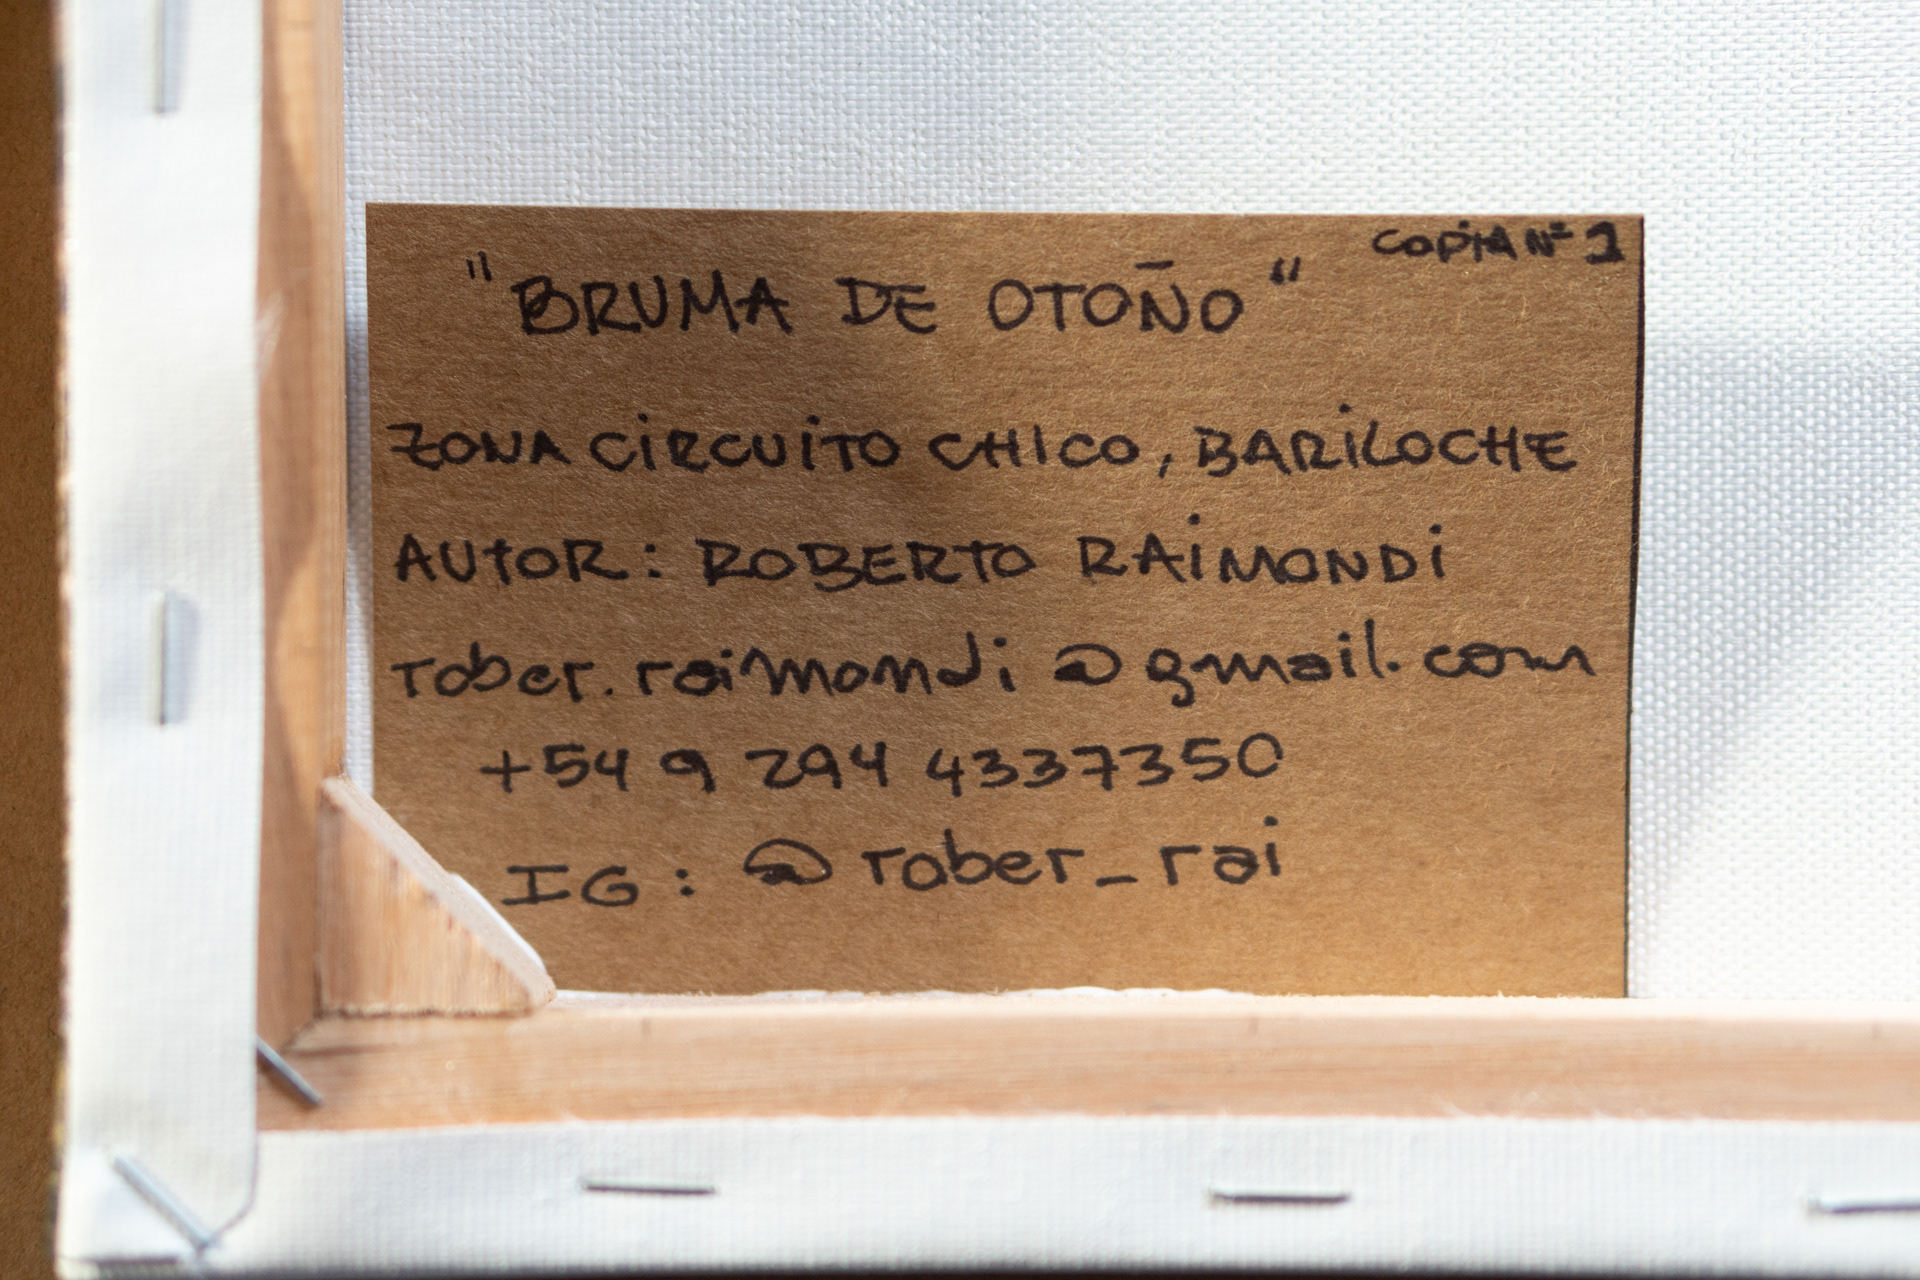 COPIA Nº 1
"BRUMA DE OTOÑO"
ZONA CIRCUITO CHICO, BARILOCHE
AUTOR: ROBERTO RAIMONDI
rober.raimondi@gmail.com
+54 9 294 4337350
IG: @rober_rai